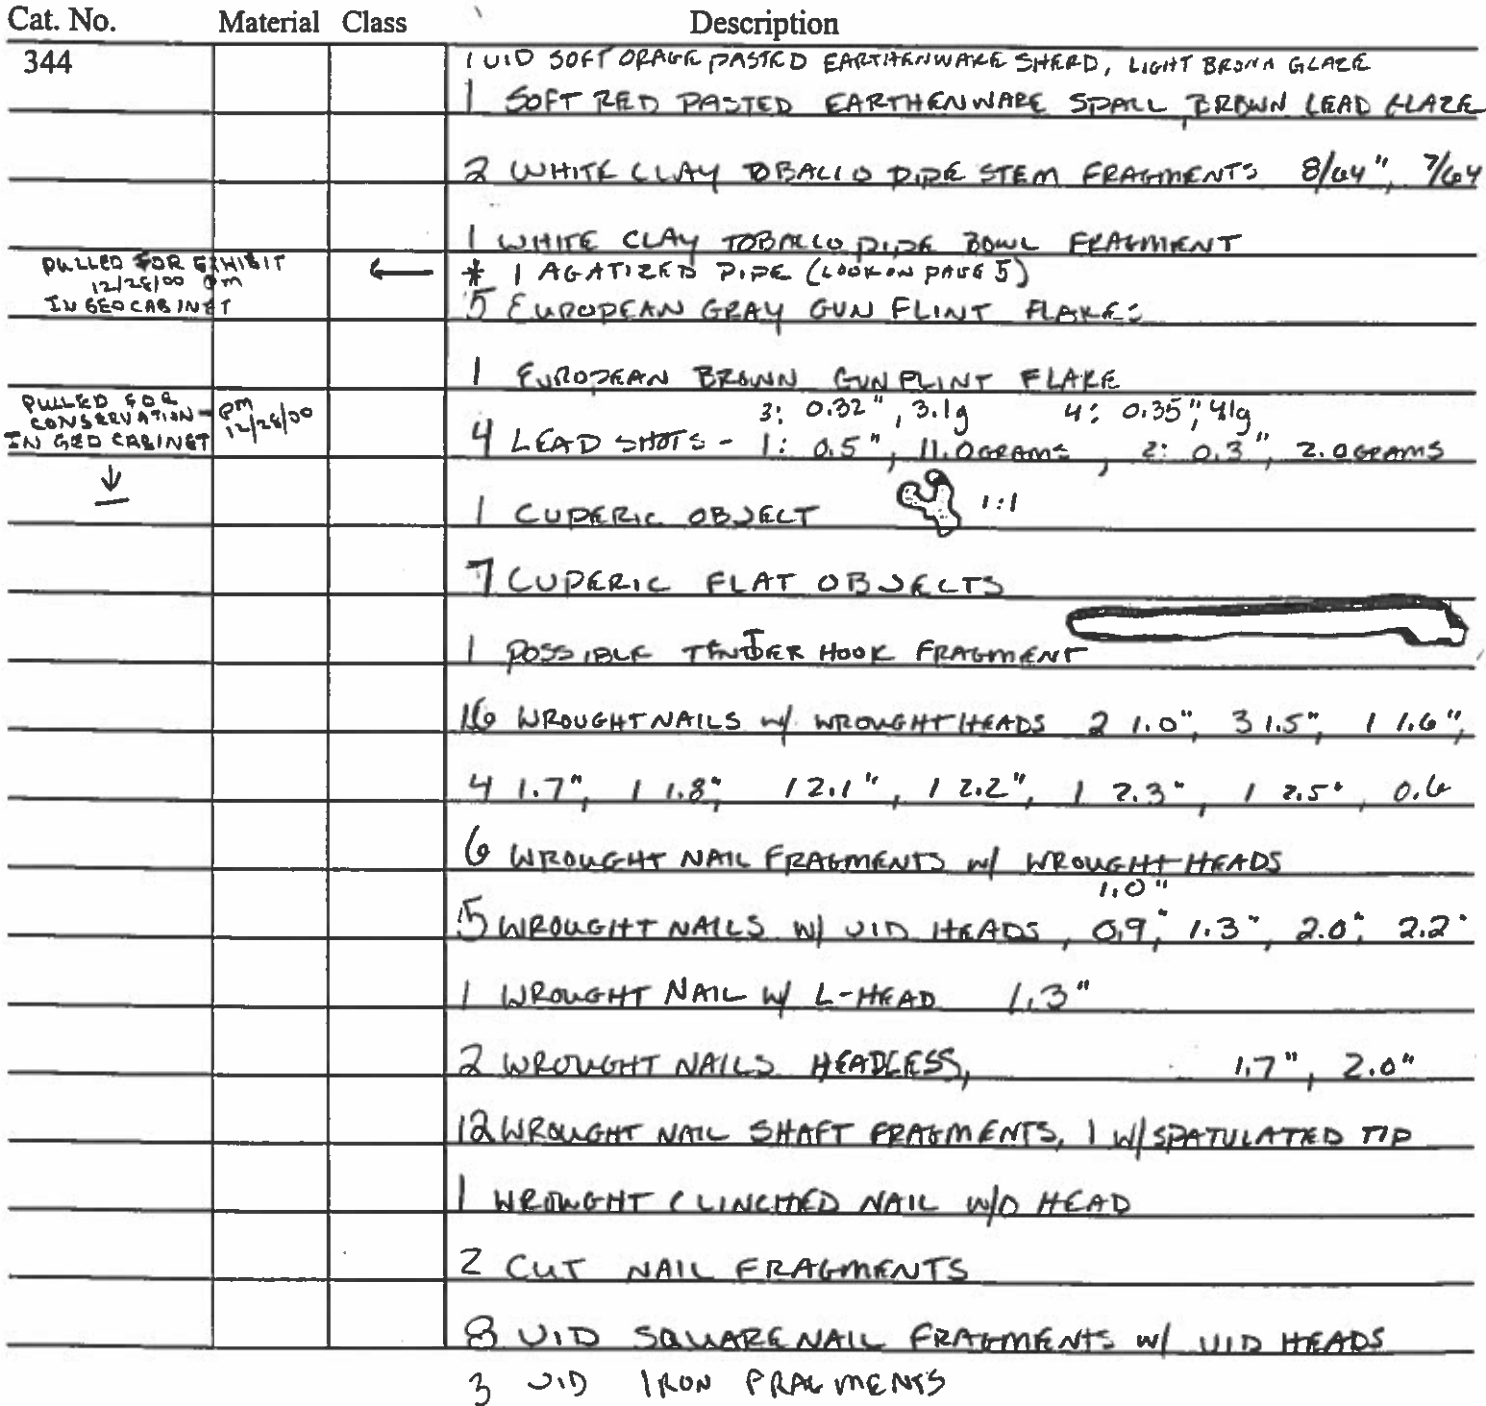 Cat. No. Material Class Description
344
1 UID SOFT ORAGE PASTED EARTHENWARE SHERD, LIGHT BROWN GLAZE
1 SOFT RED PASTED EARTHENWARE SPALL, BROWN LEAD GLAZE
2 WHITE CLAY TOBACCO PIPE STEM FRAGMENTS 8/64", 7/64
1 WHITE CLAY TOBACCO PIPE BOWL FRAGMENT
PULLED FOR EXHIBIT
12/28/00 PM
IN GEO CABINET
← * 1 AGATIZED PIPE (LOOK ON PAGE 5)
5 EUROPEAN GRAY GUN FLINT FLAKES
1 EUROPEAN BROWN GUNFLINT FLAKE
PULLED FOR
CONSERVATION -
IN GEO CABINET
PM
12/28/00
3: 0.32", 3.1g 4: 0.35", 4.1g
4 LEAD SHOTS - 1: 0.5", 11.0 GRAMS, 2: 0.3", 2.0 GRAMS
1 CUPERIC OBJECT 1:1
7 CUPERIC FLAT OBJECTS
1 POSSIBLE TENTER HOOK FRAGMENT
16 WROUGHT NAILS w/ WROUGHT HEADS 2 1.0", 3 1.5", 1 1.6",
4 1.7", 1 1.8", 1 2.1", 1 2.2", 1 2.3", 1 2.5", 0.6
6 WROUGHT NAIL FRAGMENTS w/ WROUGHT HEADS
1.0"
5 WROUGHT NAILS W/ UID HEADS, 0.9", 1.3", 2.0", 2.2"
1 WROUGHT NAIL W/ L-HEAD 1.3"
2 WROUGHT NAILS HEADLESS, 1.7", 2.0"
12 WROUGHT NAIL SHAFT FRAGMENTS, 1 W/ SPATULATED TIP
1 WROUGHT CLINCHED NAIL W/O HEAD
2 CUT NAIL FRAGMENTS
8 UID SQUARE NAIL FRAGMENTS w/ UID HEADS
3 UID IRON FRAGMENTS